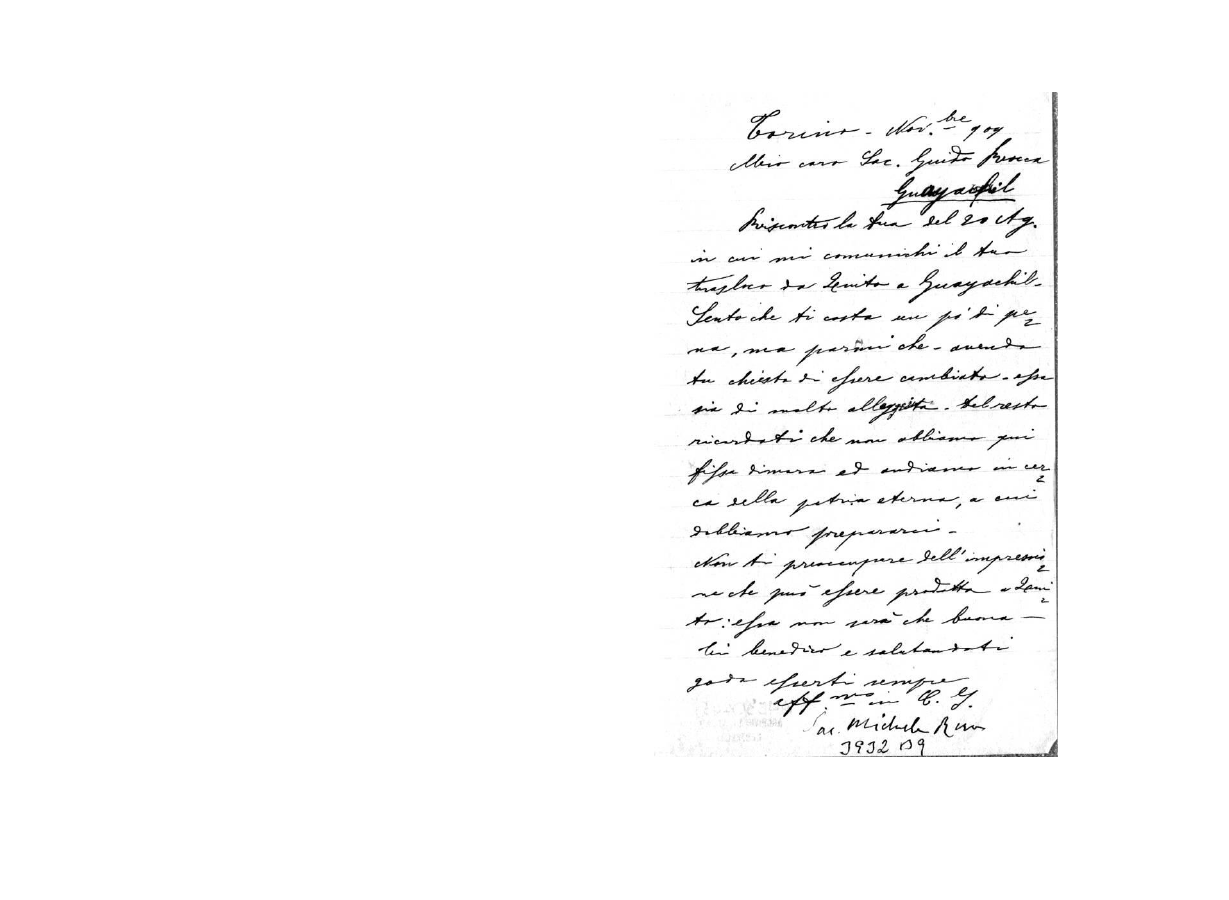 Torino - Nov.bre 909
Mio caro Sac. Guido Rocca
Guayachil
Riscontro la tua del 20 Ag.
in cui mi comunichi il tuo
trasloco da Quito a Guayachil-
Sento che ti costa un pó di pe=
na, ma parmi che - avendo
tu chiesto di essere cambiato - essa
sia di molto alleggerita. Del resto
ricordati che non abbiamo qui
fissa dimora ed andiamo in cer=
ca della patria eterna, a cui
dobbiamo prepararci -
Non ti preoccupare dell'impressio=
ne che può essere prodotta a Qui=
to: essa non sarà che buona -
Ti benedico e salutandoti
godo esserti sempre
aff.mo in C. J.
Sac. Michele Rua
3932 D9